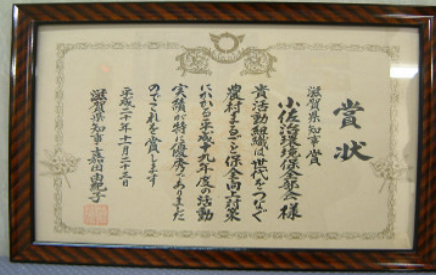 賞状
滋賀県知事賞
小佐治環境保全部会 様
貴活動組織は世代をつなぐ
農村まるごと保全向上対策
にかかる平成十九年度の活動
実績が特に優秀でありました
のでこれを賞します
平成二十年十一月二十三日
滋賀県知事 嘉田由紀子